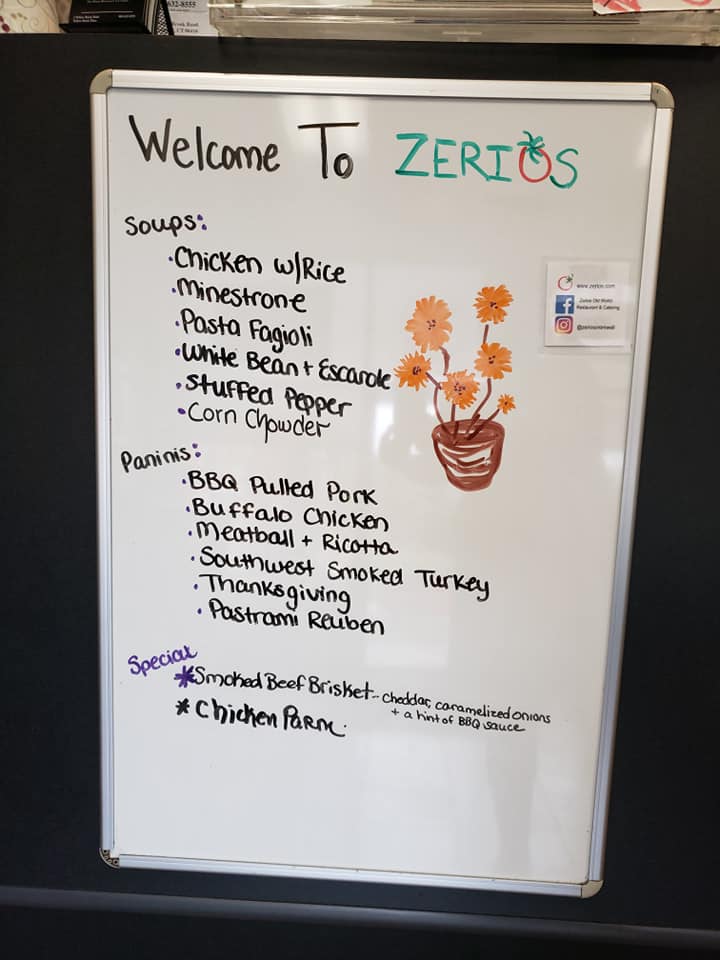 632-8555
Welcome To ZERIOS
Soups:
·Chicken w/Rice
·Minestrone
·Pasta Fagioli
·White Bean + Escarole
·Stuffed Pepper
·Corn Chowder
www.zerios.com
Zerios Old World
Restaurant & Catering
Paninis:
·BBQ Pulled Pork
·Buffalo Chicken
·Meatball + Ricotta
·Southwest Smoked Turkey
·Thanksgiving
·Pastrami Reuben
Special
*Smoked Beef Brisket-- cheddar, caramelized onions
+ a hint of BBQ sauce
*Chicken Parm.